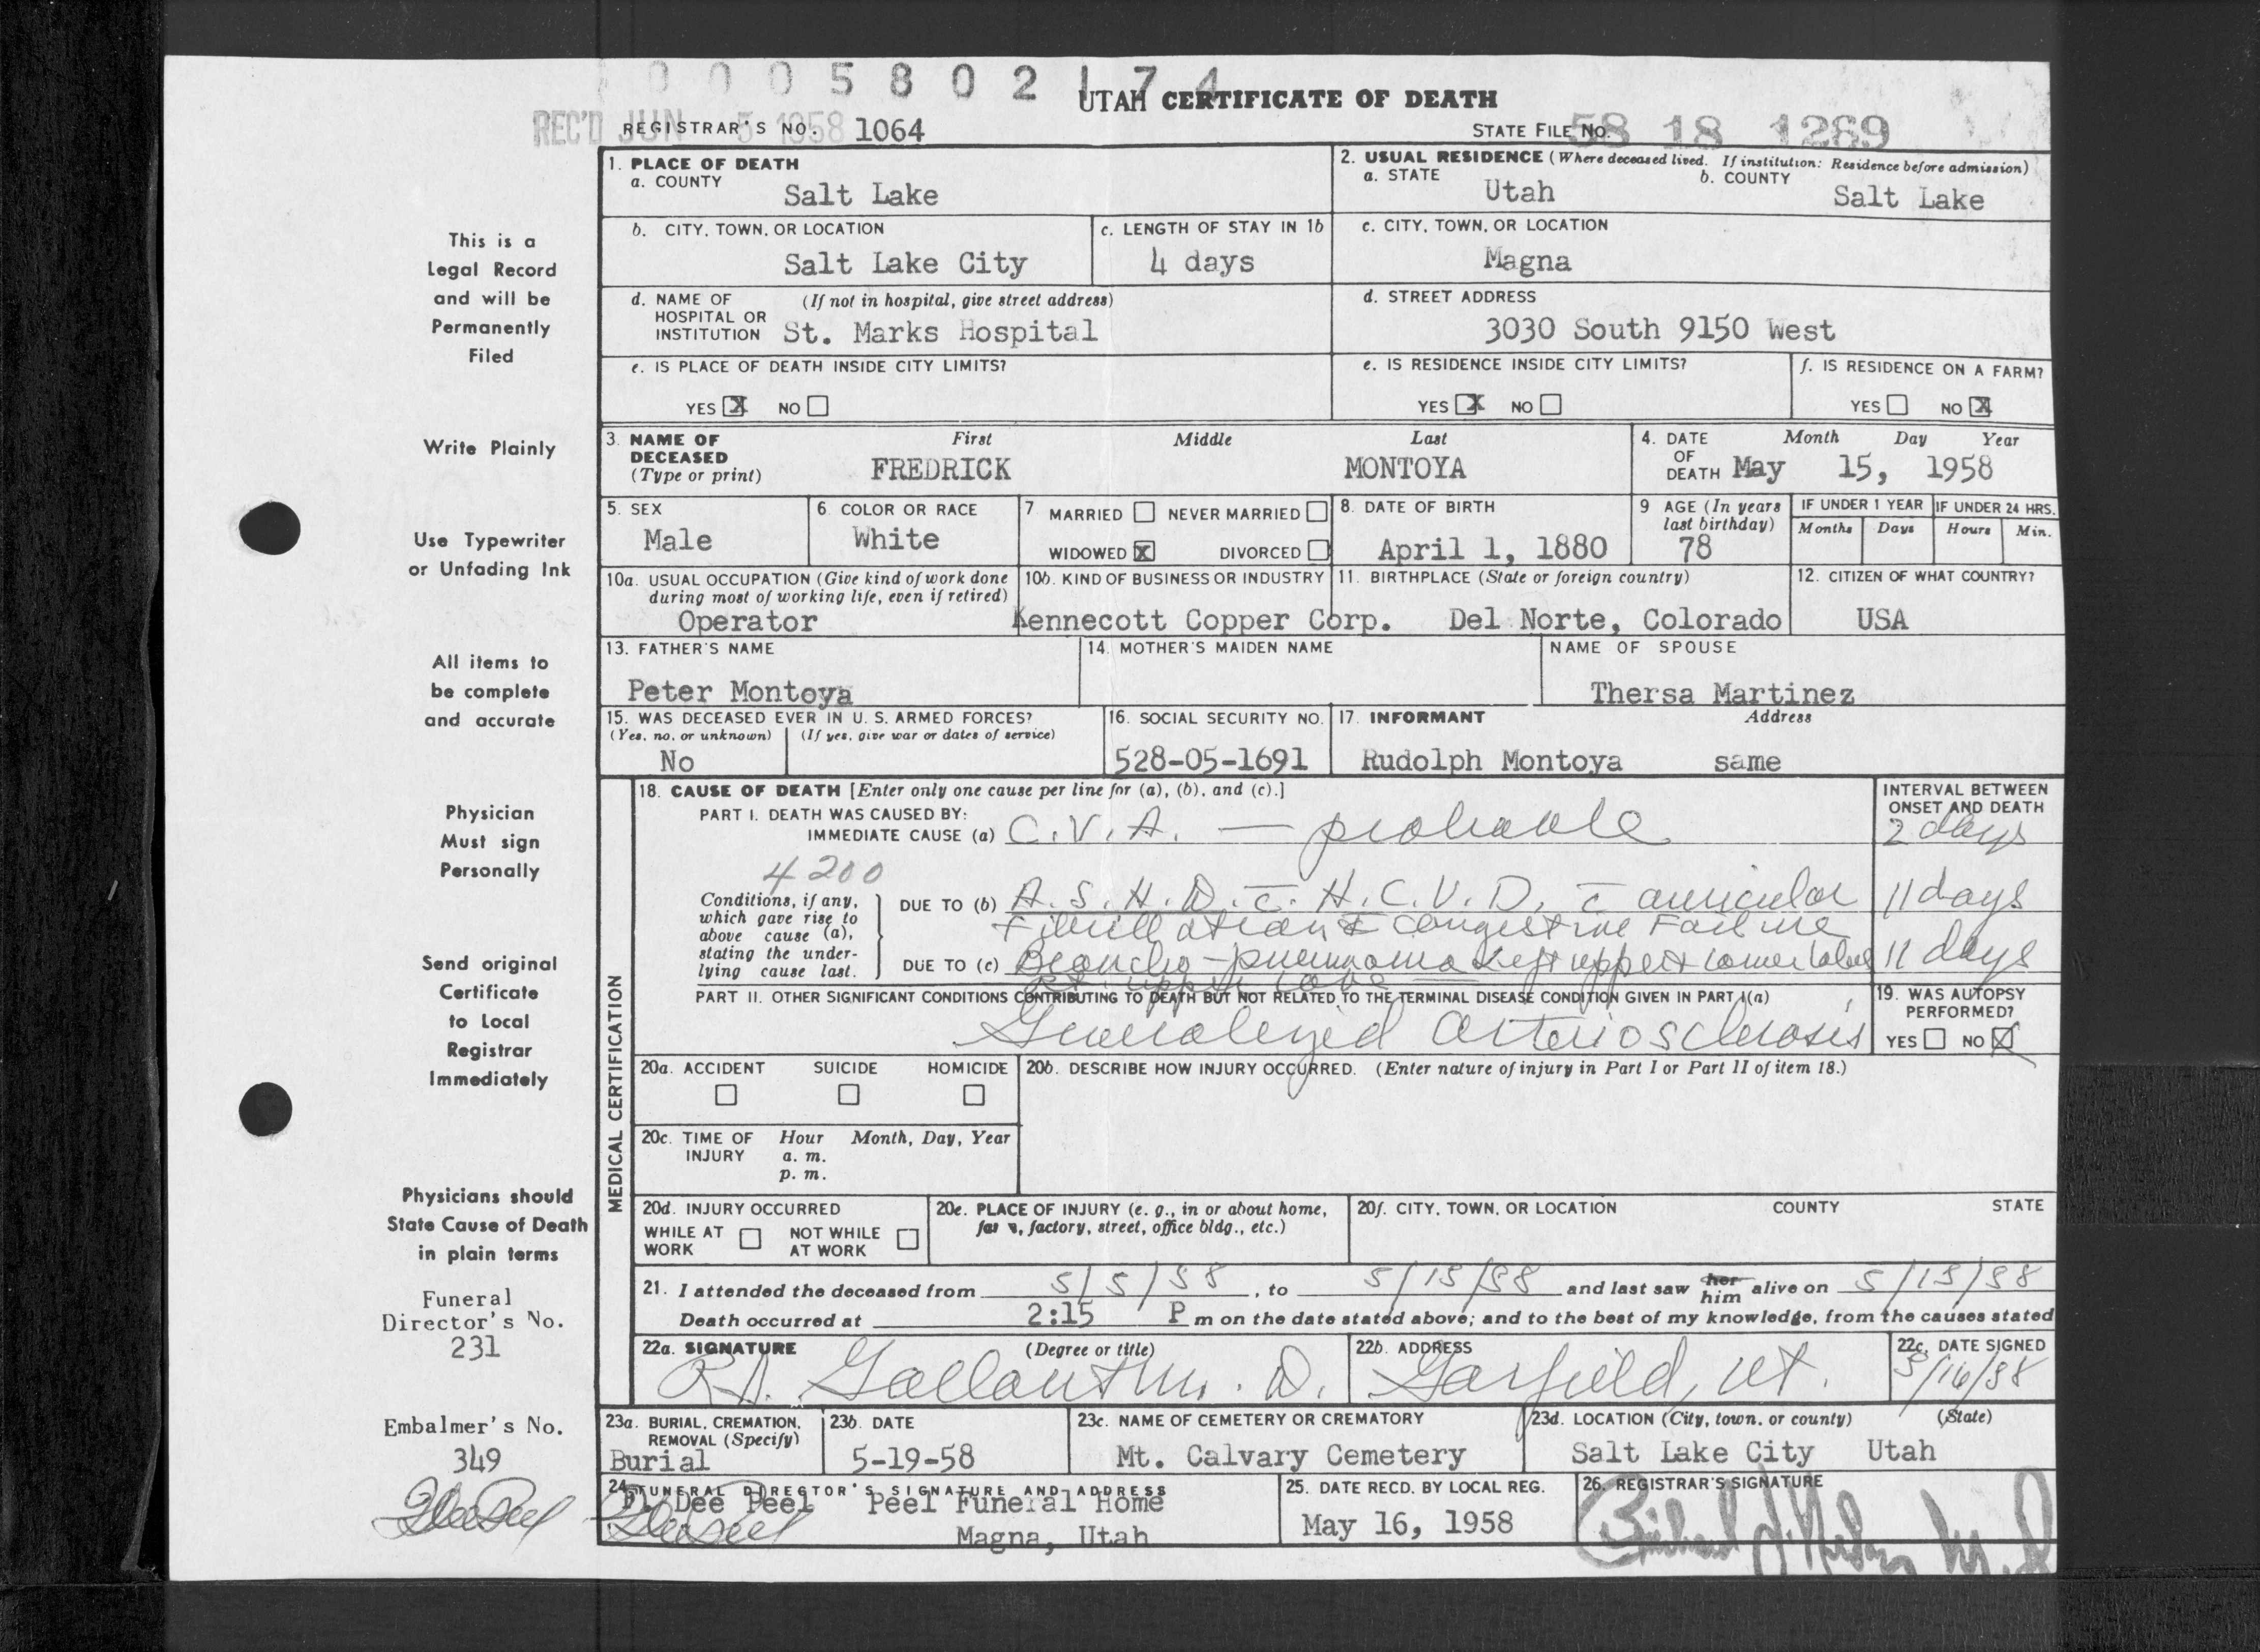 0 0 0 5 8 0 2 1 7 4
UTAH CERTIFICATE OF DEATH
REC'D JUN 5 1958
REGISTRAR'S NO. 1064
STATE FILE NO. 58 18 1269
1. PLACE OF DEATH
a. COUNTY
Salt Lake
2. USUAL RESIDENCE (Where deceased lived. If institution: Residence before admission)
a. STATE
Utah
b. COUNTY
Salt Lake
b. CITY, TOWN, OR LOCATION
Salt Lake City
c. LENGTH OF STAY IN 1b
4 days
c. CITY, TOWN, OR LOCATION
Magna
d. NAME OF (If not in hospital, give street address)
HOSPITAL OR
INSTITUTION St. Marks Hospital
d. STREET ADDRESS
3030 South 9150 West
e. IS PLACE OF DEATH INSIDE CITY LIMITS?
YES X NO
e. IS RESIDENCE INSIDE CITY LIMITS?
YES X NO
f. IS RESIDENCE ON A FARM?
YES NO X
3. NAME OF DECEASED
(Type or print)
First Middle Last
FREDRICK MONTOYA
4. DATE OF DEATH
Month Day Year
May 15, 1958
5. SEX
Male
6. COLOR OR RACE
White
7 MARRIED NEVER MARRIED
WIDOWED X DIVORCED
8. DATE OF BIRTH
April 1, 1880
9 AGE (In years last birthday)
78
IF UNDER 1 YEAR
Months Days
IF UNDER 24 HRS.
Hours Min.
10a. USUAL OCCUPATION (Give kind of work done
during most of working life, even if retired)
Operator
10b. KIND OF BUSINESS OR INDUSTRY
Kennecott Copper Corp.
11. BIRTHPLACE (State or foreign country)
Del Norte, Colorado
12. CITIZEN OF WHAT COUNTRY?
USA
13. FATHER'S NAME
Peter Montoya
14. MOTHER'S MAIDEN NAME
NAME OF SPOUSE
Thersa Martinez
15. WAS DECEASED EVER IN U. S. ARMED FORCES?
(Yes, no, or unknown) (If yes, give war or dates of service)
No
16. SOCIAL SECURITY NO.
528-05-1691
17. INFORMANT Address
Rudolph Montoya same
MEDICAL CERTIFICATION
18. CAUSE OF DEATH [Enter only one cause per line for (a), (b), and (c).]
INTERVAL BETWEEN
ONSET AND DEATH
PART I. DEATH WAS CAUSED BY:
IMMEDIATE CAUSE (a) C.V.A. — probable 2 days
4200
Conditions, if any,
which gave rise to
above cause (a),
stating the under-
lying cause last.
DUE TO (b) A.S.H.D. c̄ H.C.V.D. c̄ auricular 11 days
Fibrillation & Congestive Failure
DUE TO (c) Broncho-pneumonia Left upper & lower lobes 11 days
Rt. upper lobe
PART II. OTHER SIGNIFICANT CONDITIONS CONTRIBUTING TO DEATH BUT NOT RELATED TO THE TERMINAL DISEASE CONDITION GIVEN IN PART I(a)
Generalyzed Arteriosclerosis
19. WAS AUTOPSY
PERFORMED?
YES NO X
20a. ACCIDENT SUICIDE HOMICIDE
20b. DESCRIBE HOW INJURY OCCURRED. (Enter nature of injury in Part I or Part II of item 18.)
20c. TIME OF INJURY
Hour Month, Day, Year
a. m.
p. m.
20d. INJURY OCCURRED
WHILE AT WORK NOT WHILE AT WORK
20e. PLACE OF INJURY (e. g., in or about home,
farm, factory, street, office bldg., etc.)
20f. CITY, TOWN, OR LOCATION COUNTY STATE
21. I attended the deceased from 5/5/58, to 5/15/58 and last saw her him alive on 5/15/58
Death occurred at 2:15 P m on the date stated above; and to the best of my knowledge, from the causes stated
22a. SIGNATURE (Degree or title)
R.A. Gallant M. D.
22b. ADDRESS
Garfield, Ut.
22c. DATE SIGNED
5/16/58
23a. BURIAL, CREMATION,
REMOVAL (Specify)
Burial
23b. DATE
5-19-58
23c. NAME OF CEMETERY OR CREMATORY
Mt. Calvary Cemetery
23d. LOCATION (City, town, or county) (State)
Salt Lake City Utah
24. FUNERAL DIRECTOR'S SIGNATURE AND ADDRESS
D. Dee Peel Peel Funeral Home
Magna, Utah
25. DATE RECD. BY LOCAL REG.
May 16, 1958
26. REGISTRAR'S SIGNATURE
This is a
Legal Record
and will be
Permanently
Filed
Write Plainly
Use Typewriter
or Unfading Ink
All items to
be complete
and accurate
Physician
Must sign
Personally
Send original
Certificate
to Local
Registrar
Immediately
Physicians should
State Cause of Death
in plain terms
Funeral
Director's No.
231
Embalmer's No.
349